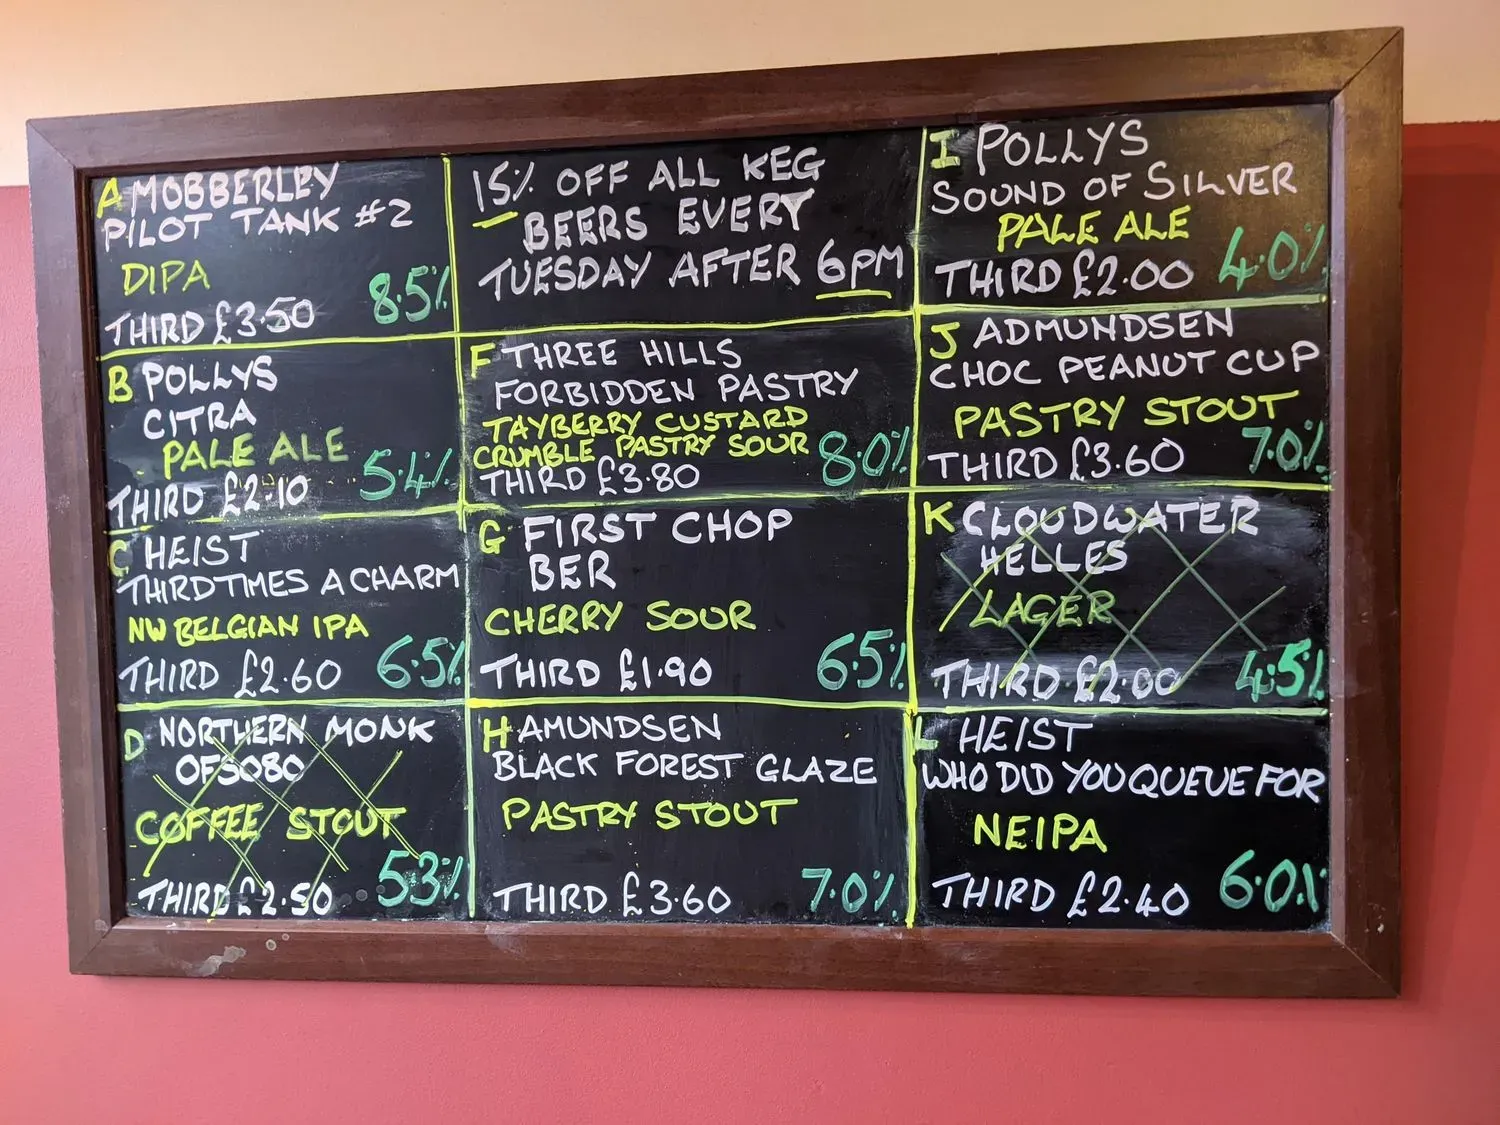 A MOBBERLEY
PILOT TANK #2
DIPA
8.5%
THIRD £3.50
B POLLYS
CITRA
PALE ALE
5.4%
THIRD £2.10
C HEIST
THIRD TIMES A CHARM
NW BELGIAN IPA
THIRD £2.60 6.5%
D NORTHERN MONK
OFS080
COFFEE STOUT
THIRD £2.50 5.3%
15% OFF ALL KEG
BEERS EVERY
TUESDAY AFTER 6PM
F THREE HILLS
FORBIDDEN PASTRY
TAYBERRY CUSTARD
CRUMBLE PASTRY SOUR 8.0%
THIRD £3.80
G FIRST CHOP
BER
CHERRY SOUR
THIRD £1.90 6.5%
H AMUNDSEN
BLACK FOREST GLAZE
PASTRY STOUT
THIRD £3.60 7.0%
I POLLYS
SOUND OF SILVER
PALE ALE
THIRD £2.00 4.0%
J ADMUNDSEN
CHOC PEANUT CUP
PASTRY STOUT
THIRD £3.60 7.0%
K CLOUDWATER
HELLES
LAGER
THIRD £2.00 4.5%
L HEIST
WHO DID YOU QUEUE FOR
NEIPA
THIRD £2.40 6.0%